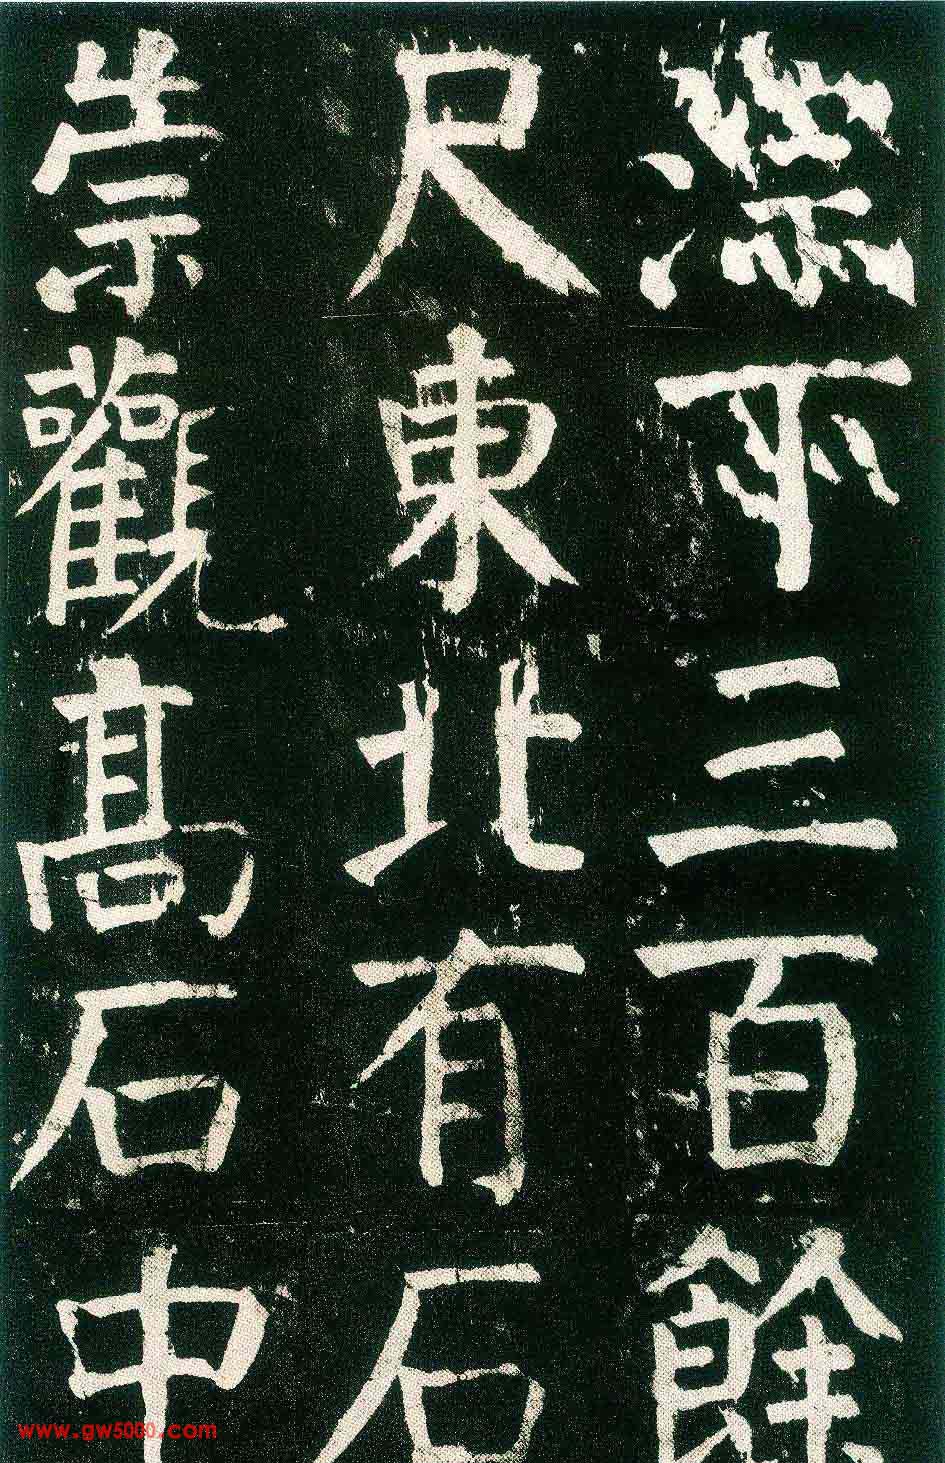 淙下三百餘
尺東北有石
崇觀高石中
www.gw5000.com